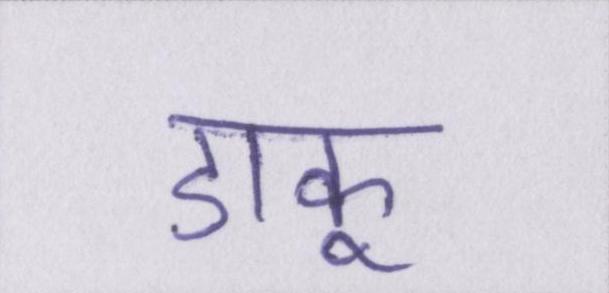 डाकू